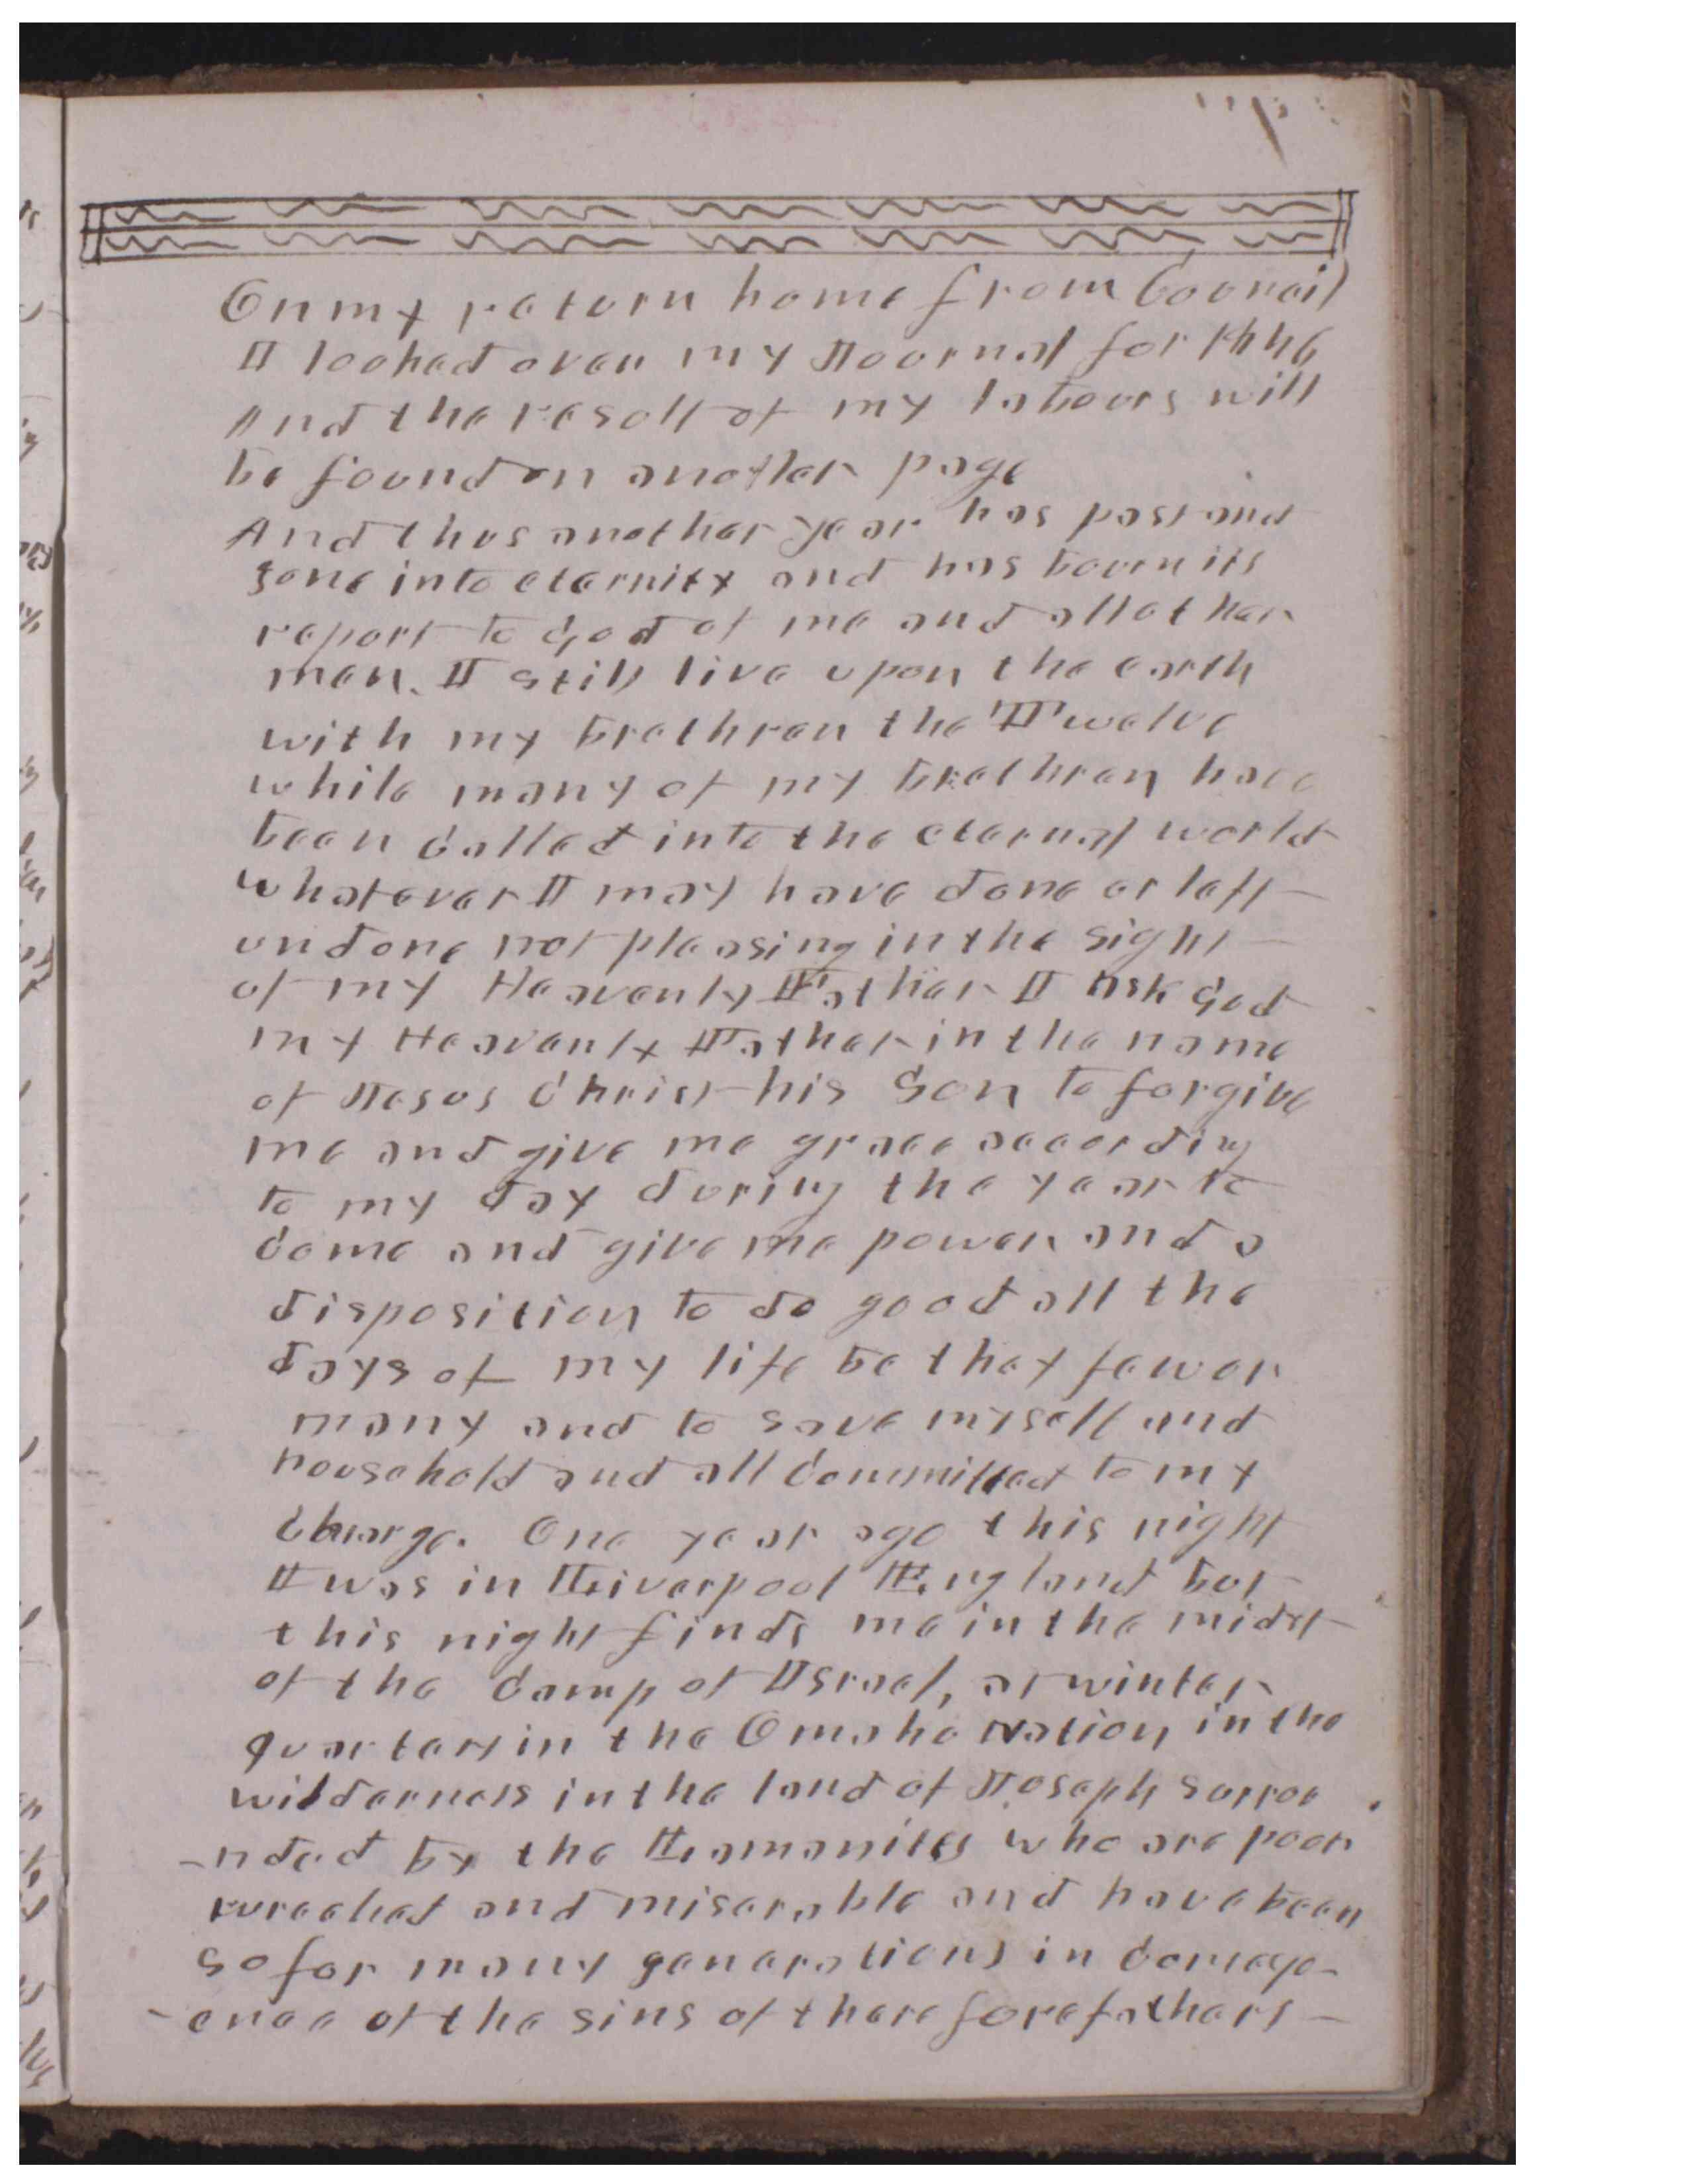 On my return home from Councıl
I looked over my Journal for 1846
And the result of my labours will
be found on another page
And thus another year has past and
gone into eternity and has bourn its
report to God of me and all other
men. I still live upon the earth
with my brethren the Twelve
while many of my brethren have
been called into the eternal world
whatever I may have done or left
undone not pleasing in the sight
of my Heavenly Father I ask God
my Heavenly Father in the name
of Jesus Christ his Son to forgive
me and give me grace according
to my day during the year to
come and give me power and a
disposition to do good all the
days of my life be they few or
many and to save myself and
household and all committed to my
charge. One year ago this night
I was in Liverpool England but
this night finds me in the midst
of the Camp of Israel, at winter
quarters in the Omaha Nation in the
wilderness in the land of Joseph surrou
-nded by the Lamanites who are poor
wreched and miserable and have been
so for many generations in conseqe-
-ence of the sins of there forefathers